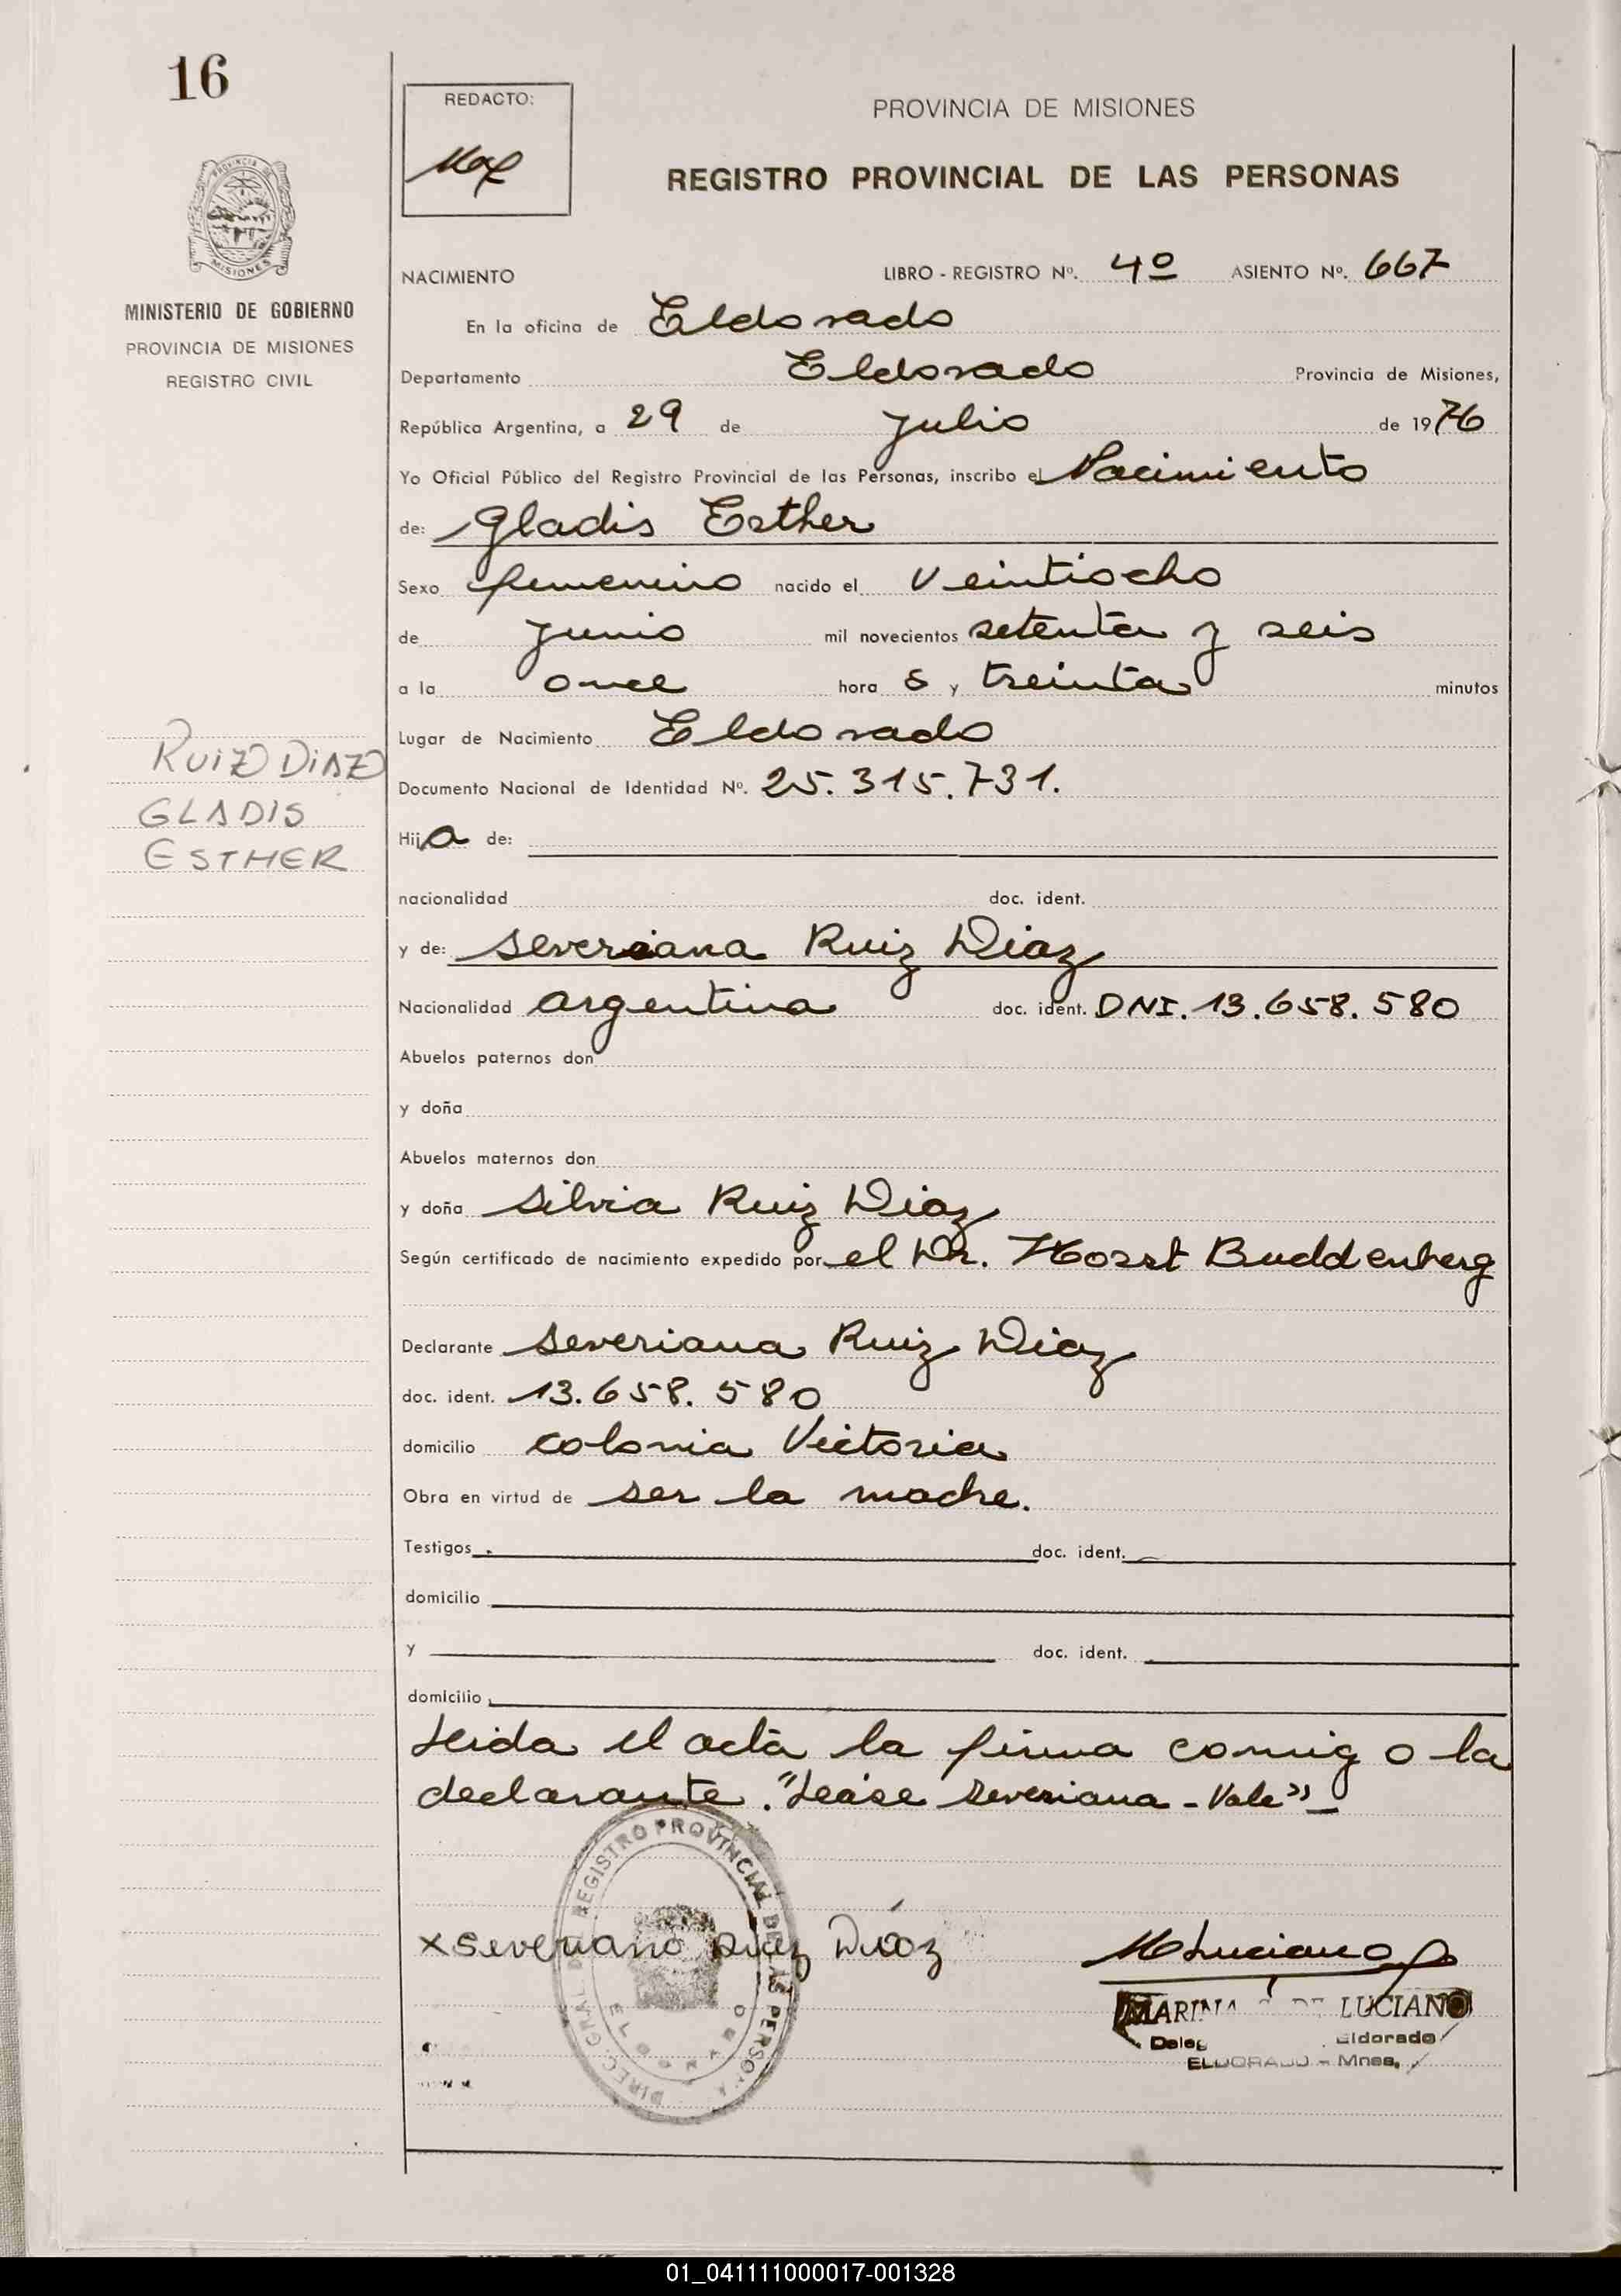 16
REDACTO:
PROVINCIA DE MISIONES
REGISTRO PROVINCIAL DE LAS PERSONAS
PROVINCIA
MISIONES
MINISTERIO DE GOBIERNO
PROVINCIA DE MISIONES
REGISTRO CIVIL
NACIMIENTO LIBRO - REGISTRO Nº. 4º ASIENTO Nº. 667
En la oficina de Eldorado
Departamento Eldorado Provincia de Misiones,
República Argentina, a 29 de Julio de 1976
Yo Oficial Público del Registro Provincial de las Personas, inscribo el Nacimiento
de: Gladis Esther
Sexo femenino nacido el veintiocho
de Junio mil novecientos setenta y seis
a la once hora s y treinta minutos
Lugar de Nacimiento Eldorado
RUIZ DIAZ
GLADIS
ESTHER
Documento Nacional de Identidad Nº. 25.315.731.
Hija de:
nacionalidad doc. ident.
y de: Severiana Ruiz Diaz
Nacionalidad argentina doc. ident. DNI. 13.658.580
Abuelos paternos don
y doña
Abuelos maternos don
y doña Silvia Ruiz Diaz
Según certificado de nacimiento expedido por el Dr. Horst Buddenberg
Declarante Severiana Ruiz Diaz
doc. ident. 13.658.580
domicilio colonia Victoria
Obra en virtud de ser la madre.
Testigos doc. ident.
domicilio
y doc. ident.
domicilio
Leida el acta la firma conmigo la
declarante. "Leáse Severiana - Vale"
x Severiano Ruiz Diaz
MLuciano
DIREC. GRAL. DE REGISTRO PROVINCIAL DE LAS PERSONAS
ELDORADO
MARINA DE LUCIANO
Eldorado
ELDORADO - Mnes.
01_041111000017-001328